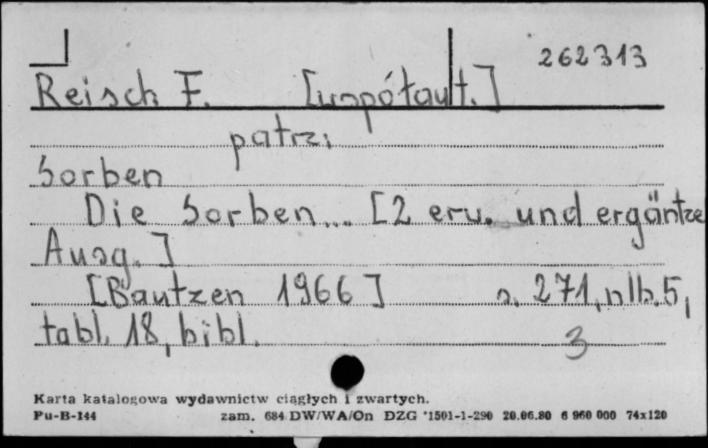 262313
Reisch F. [współaut.]
patrz:
Sorben
Die Sorben... [2 erw. und ergäntze
Ausg.]
[Bautzen 1966] s. 271, nlb. 5,
tabl. 18, bibl.
3
Karta katalogowa wydawnictw ciągłych i zwartych.
Pu-B-144 zam. 684 DW/WA/On DZG *1501-1-290 20.06.80 6 960 000 74x120